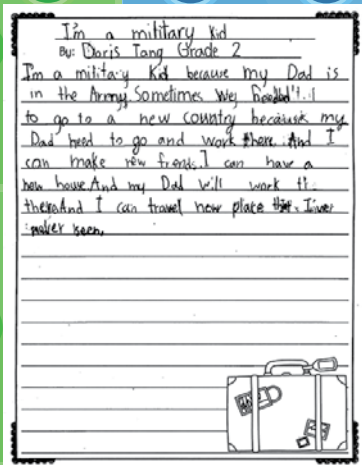 I'm a military kid
By: Doris Tang Grade 2
I'm a military Kid because my Dad is
in the Army. Sometimes we
to go to a new country because my
Dad need to go and work there. And I
can make new frends. I can have a
house. And my Dad will work
there And I can travel new place I
never seen.